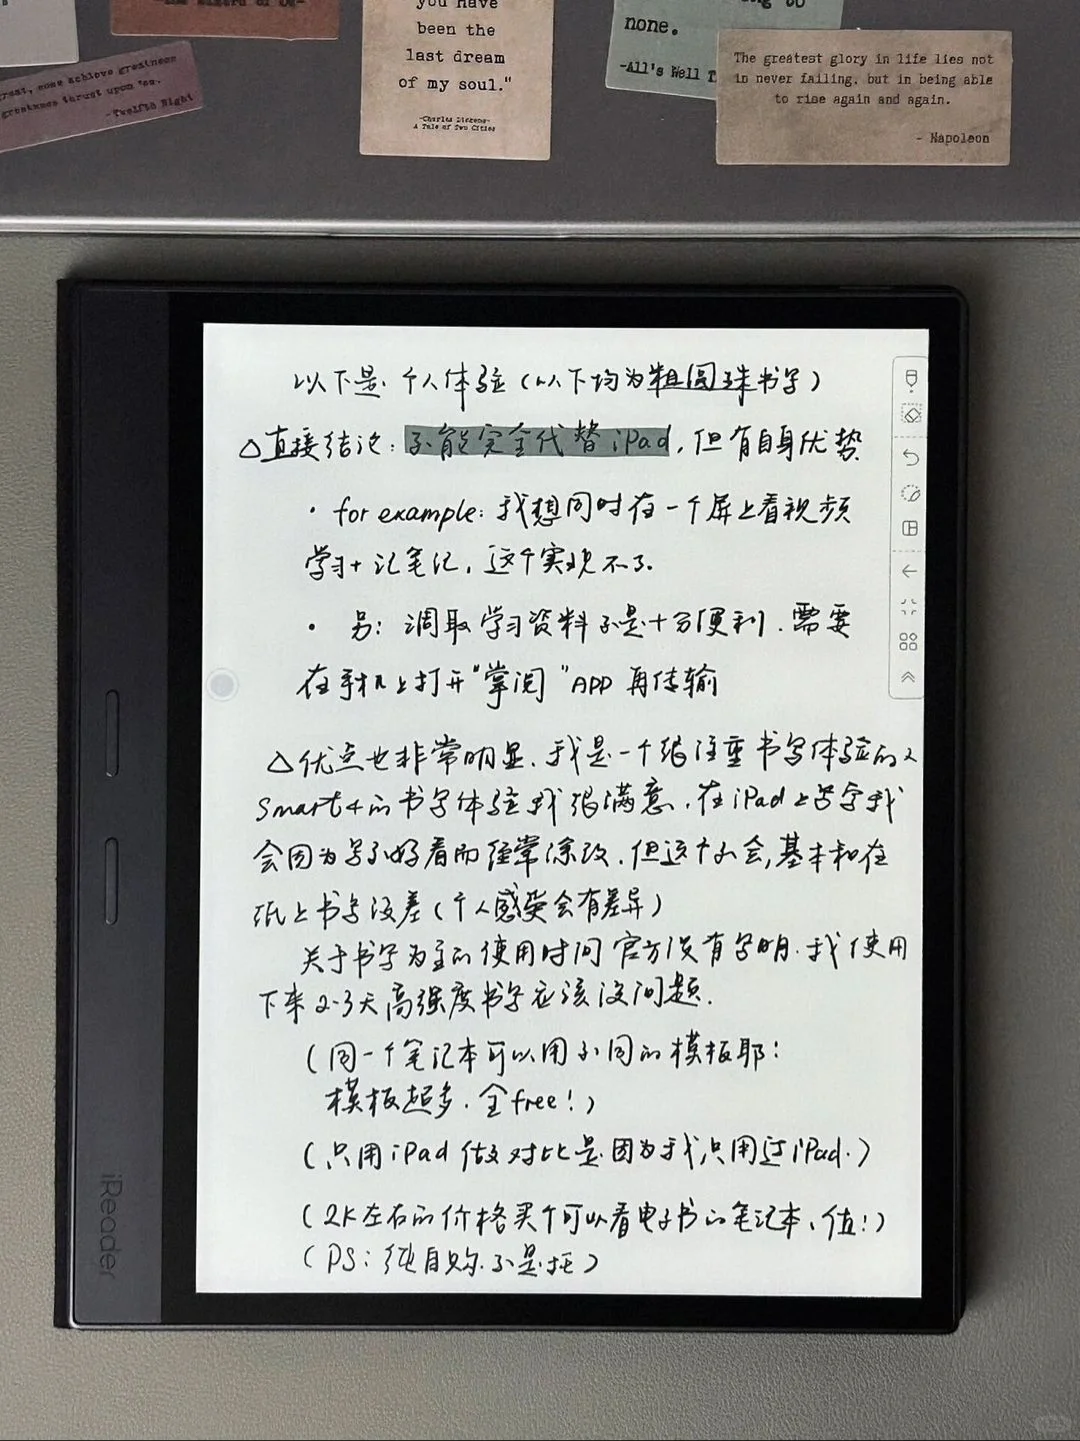 you have
been the
last dream
of my soul."
-Charles Dickens-
A Tale of Two Cities
some achieve greatness
greatness thrust upon 'em.
-Twelfth Night
none.
-All's Well
The greatest glory in life lies not
in never failing, but in being able
to rise again and again.
- Napoleon
以下是个人体验(以下均为粗圆珠书写)
△直接结论:不能完全代替iPad,但有自身优势
· for example:我想同时在一个屏上看视频
学习+记笔记,这个实现不了.
· 另:调取学习资料不是十分便利.需要
在手机上打开"掌阅"APP再传输
△优点也非常明显.我是一个很注重书写体验的人
Smart4的书写体验我很满意.在iPad上写字我
会因为写不好看而经常涂改.但这个不会,基本和在
纸上书写没差(个人感受会有差异)
关于书写为主的使用时间官方没有写明.我使用
下来2-3天高强度书写应该没问题.
(同一个笔记本可以用不同的模板耶!
模板超多.全free!)
(只用iPad做对比是因为我只用过iPad.)
(2K左右的价格买个可以看电子书的笔记本、值!)
(PS:纯自购.不是托)
iReader